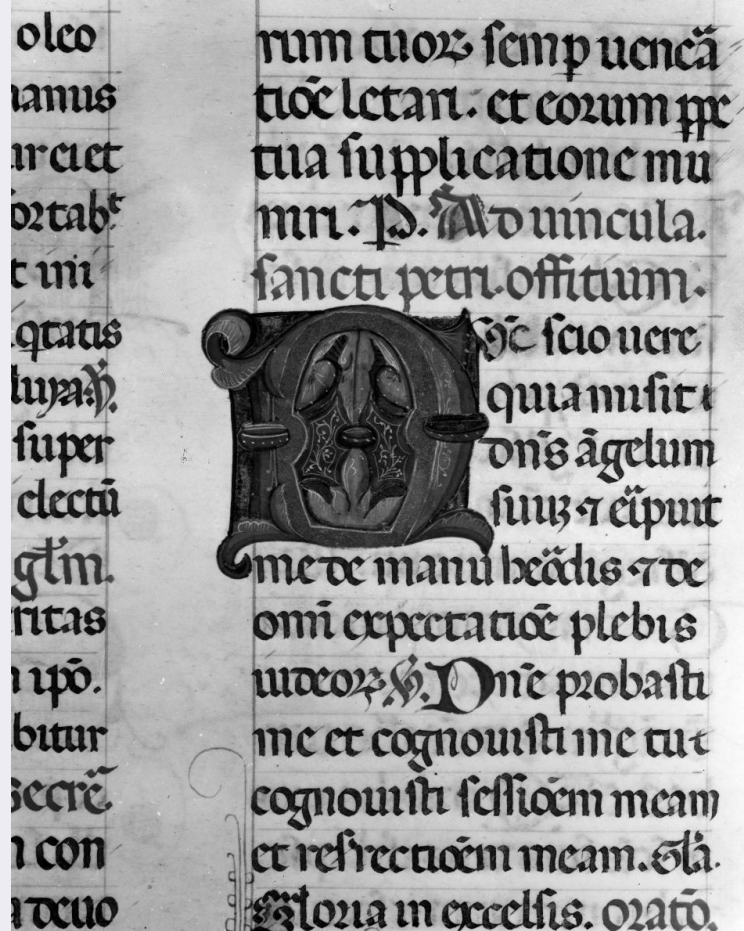 oleo
manus
ur ei et
fortab͛
t mi
.qtatis
luya. V̄.
super
electū
gl̄m.
ritas
n ip̄o.
bitur
secrē.
n con
a deuo
rum tuoꝝ semp uenẽa
tiōe letari. et eorum ꝓpe
tua supplicatione mu
niri. P. Ad uincula.
sancti petri. offitium.
Nc̄ scio uere
quia misit
dn̄s āgelum
suuꝫ ⁊ eĩpuit
me de manu heõdis ⁊ de
omī expectatiōe plebis
iudeoꝝ. V̄. Dn̄e probasti
me et cognouisti me tu
cognouisti sessioēm meam
et resrectiōem meam. Gl̄a.
Gloria in excelsis. oratō.